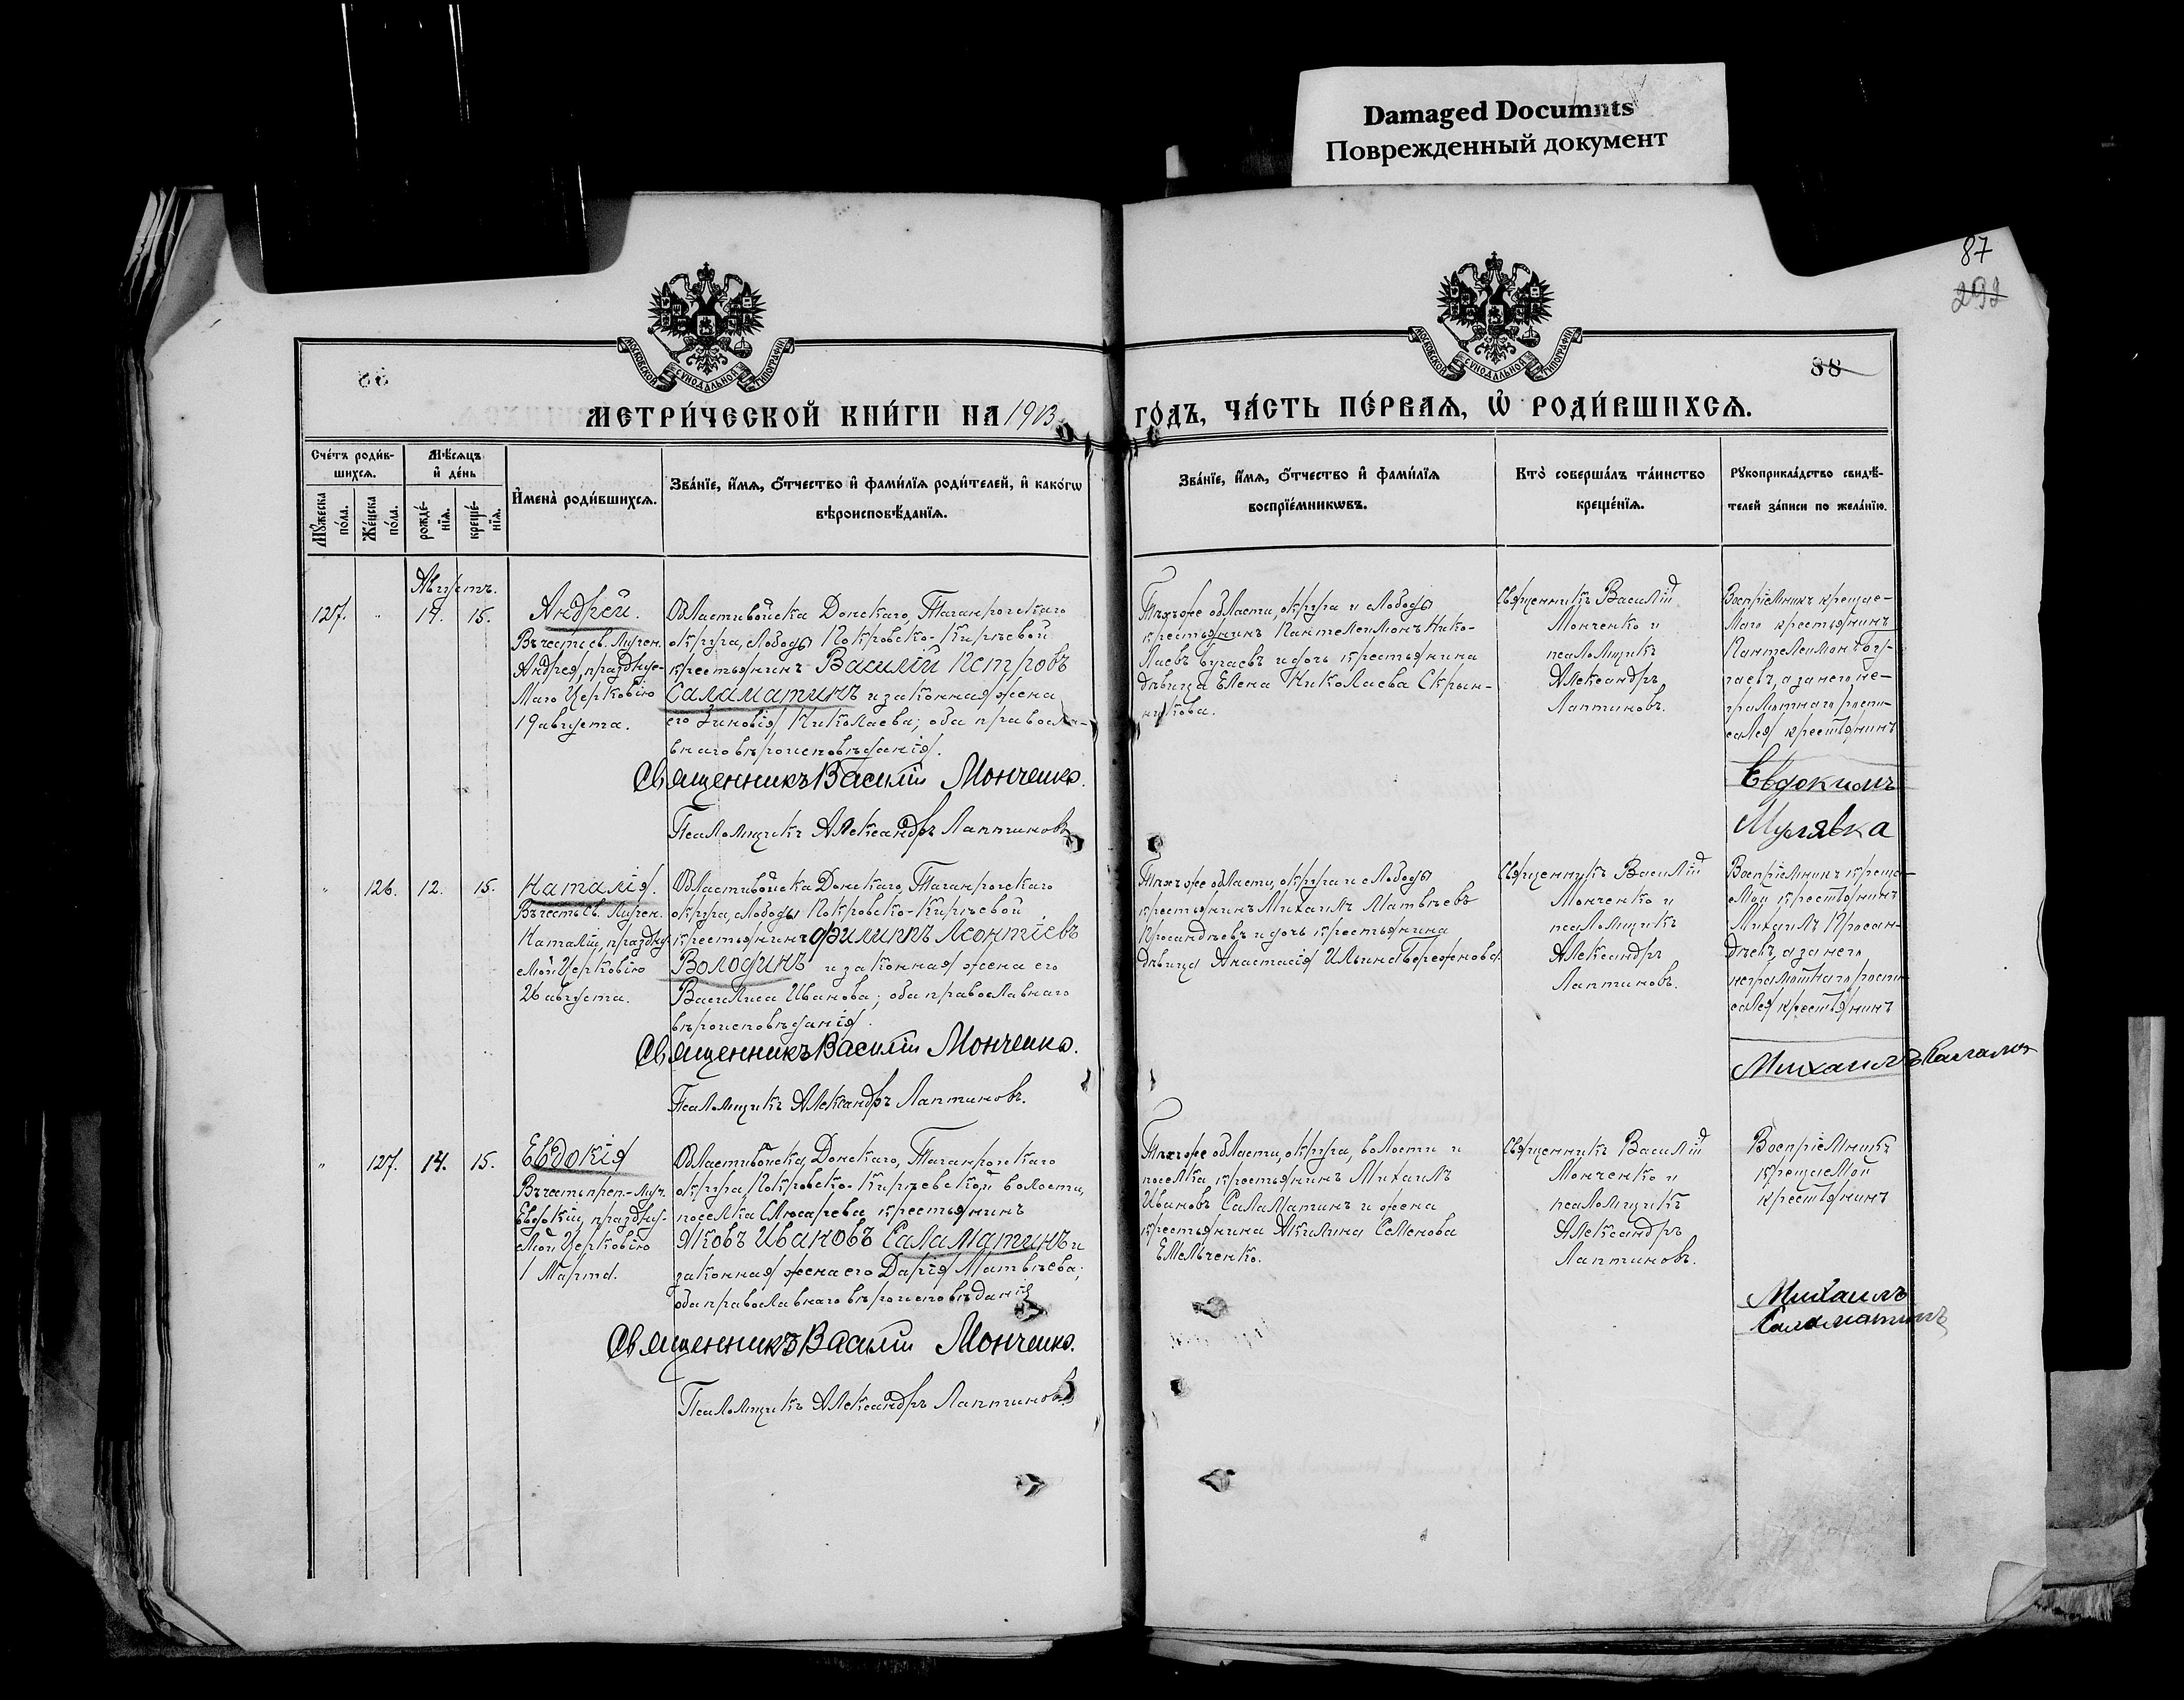 Damaged Documnts
Поврежденный документ
87
292
МОСКОВСКОЙ СѴНОДАЛЬНОЙ ТИПОГРАФІИ
МОСКОВСКОЙ СѴНОДАЛЬНОЙ ТИПОГРАФІИ
88
МЕТРИ́ЧЕСКОЙ КНИ́ГИ НА 1913
ГО́ДЪ, ЧА́СТЬ ПЕ́РВАѦ, Ѡ҆ РОДИ́ВШИХСѦ.
Сче́тъ роди́в-
шихсѧ.
Мꙋ́жеска по́ла.
Же́нска по́ла.
Мѣ́сѧцъ
и҆ де́нь
рожде́-нїѧ.
креще́-нїѧ.
И҆мена̀ роди́вшихсѧ.
Зва́нїе, и҆́мѧ, ѻ҆́тчество и҆ фами́лїѧ роди́телей, и҆ како́гѡ
вѣроисповѣ́данїѧ.
Зва́нїе, и҆́мѧ, ѻ҆́тчество и҆ фами́лїѧ
воспрїе́мникѡвъ.
Кто̀ соверша́лъ та́инство
креще́нїѧ.
Рꙋкоприкла́дство свидѣ́-
телей за́писи по жела́нїю.
Августъ.
127. " 14. 15.
Андрей.
Въ честь св. Мучен.
Андрея, празднуе-
маго Церковію
19 августа.
Области войска Донскаго, Таганрогскаго
округа, слободы Покровско-Киреевой
крестьянинъ Василій Петровъ
Саламатинъ и законная жена
его Зиновія Николаева; оба правосла-
внаго вероисповеданія.
Священникъ Василій Монченко.
Псаломщикъ Александръ Лаптиновъ
Техъ же области, округа и слободы
крестьянинъ Пантелеимонъ Нико-
лаевъ Бугаевъ и дочь крестьянина
девица Елена Николаева Скрын-
никова.
Священникъ Василій
Монченко и
псаломщикъ
Александръ
Лаптиновъ.
Воспріемникъ крещае-
маго крестьянинъ
Пантелеимонъ Бу-
гаевъ, а за него не-
грамотнаго роспи-
сался крестьянинъ
Евдокимъ
Мулявка
" 126. 12. 15.
Наталія.
Въ честь св. Мучен.
Наталіи, праздну-
емой Церковію
26 августа.
Области войска Донскаго, Таганрогскаго
округа, слободы Покровско-Киреевой
крестьянинъ Филиппъ Леонтіевъ
Володинъ и законная жена его
Василиса Иванова; оба православнаго
вероисповеданія.
Священникъ Василій Монченко.
Псаломщикъ Александръ Лаптиновъ.
Техъ же области, округа и слободы
крестьянинъ Михаилъ Матвеевъ
Просандеевъ и дочь крестьянина
девица Анастасія Ильина Бережнова.
Священникъ Василій
Монченко и
псаломщикъ
Александръ
Лаптиновъ.
Воспріемникъ креща-
емой крестьянинъ
Михаилъ Просан-
деевъ, а за него
неграмотнаго роспи-
сался крестьянинъ
Михаилъ
" 127. 14. 15.
Евдокія
Въ честь преп.-Муч.
Евдокіи, праздну-
емой Церковію
1 Марта.
Области войска Донскаго, Таганрогскаго
округа, Покровско-Киреевской волости,
поселка Слюсарева крестьянинъ
Яковъ Ивановъ Саламатинъ и
законная жена его Дарія Матвеева;
оба православнаго вероисповеданія
Священникъ Василій Монченко.
Псаломщикъ Александръ Лаптиновъ.
Техъ же области, округа, волости и
поселка крестьянинъ Михаилъ
Ивановъ Саламатинъ и жена
крестьянина Акилина Семенова
Емельченко.
Священникъ Василій
Монченко и
псаломщикъ
Александръ
Лаптиновъ.
Воспріемникъ
крещаемой
крестьянинъ
Михаилъ
Саламатинъ